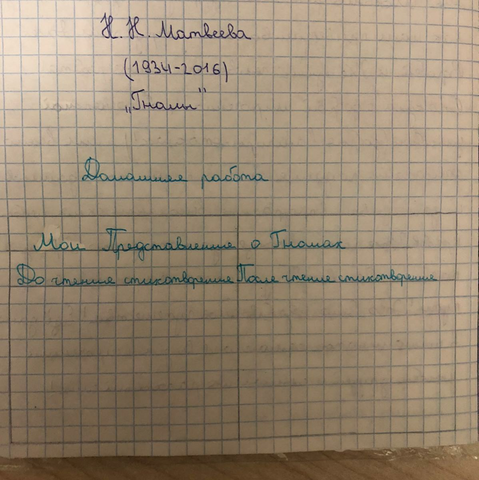 Н. Н. Матвеева
(1934-2016)
„Гномы"
Домашнее работа
Мои Представление о Гномах
До чтение стихотворение После чтение стихотворение